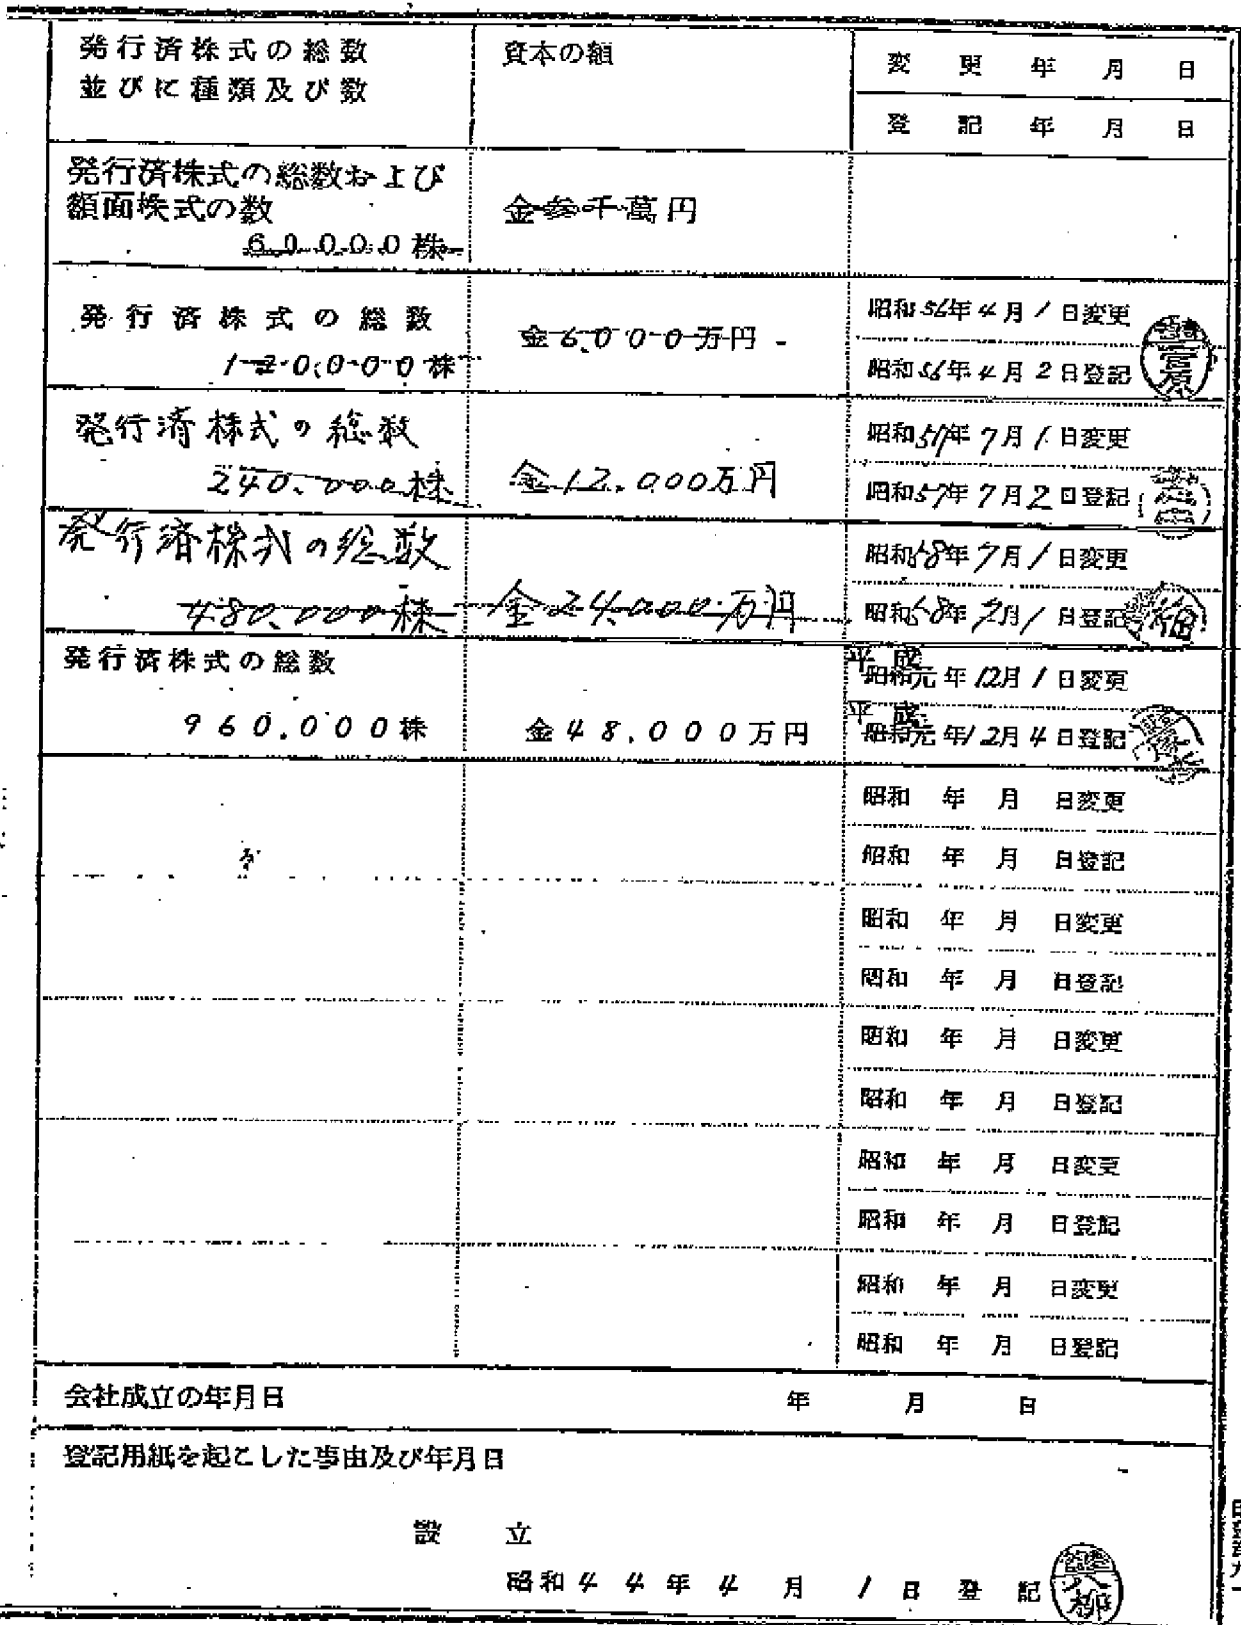 発行済株式の総数
並びに種類及び数
資本の額
変更年月日
登記年月日
発行済株式の総数および
額面株式の数
60,000株
金参千萬円
発行済株式の総数
120,000株
金6,000万円
昭和56年4月1日変更
昭和56年4月2日登記
発行済株式の総数
240,000株
金12,000万円
昭和57年7月1日変更
昭和57年7月2日登記
発行済株式の総数
480,000株
金24,000万円
昭和58年7月1日変更
昭和58年7月1日登記
発行済株式の総数
960,000株
金48,000万円
平成
昭和元年12月1日変更
平成
昭和元年12月4日登記
昭和 年 月 日変更
昭和 年 月 日登記
昭和 年 月 日変更
昭和 年 月 日登記
昭和 年 月 日変更
昭和 年 月 日登記
昭和 年 月 日変更
昭和 年 月 日登記
昭和 年 月 日変更
昭和 年 月 日登記
会社成立の年月日 年 月 日
登記用紙を起こした事由及び年月日
設立
昭和44年4月1日登記